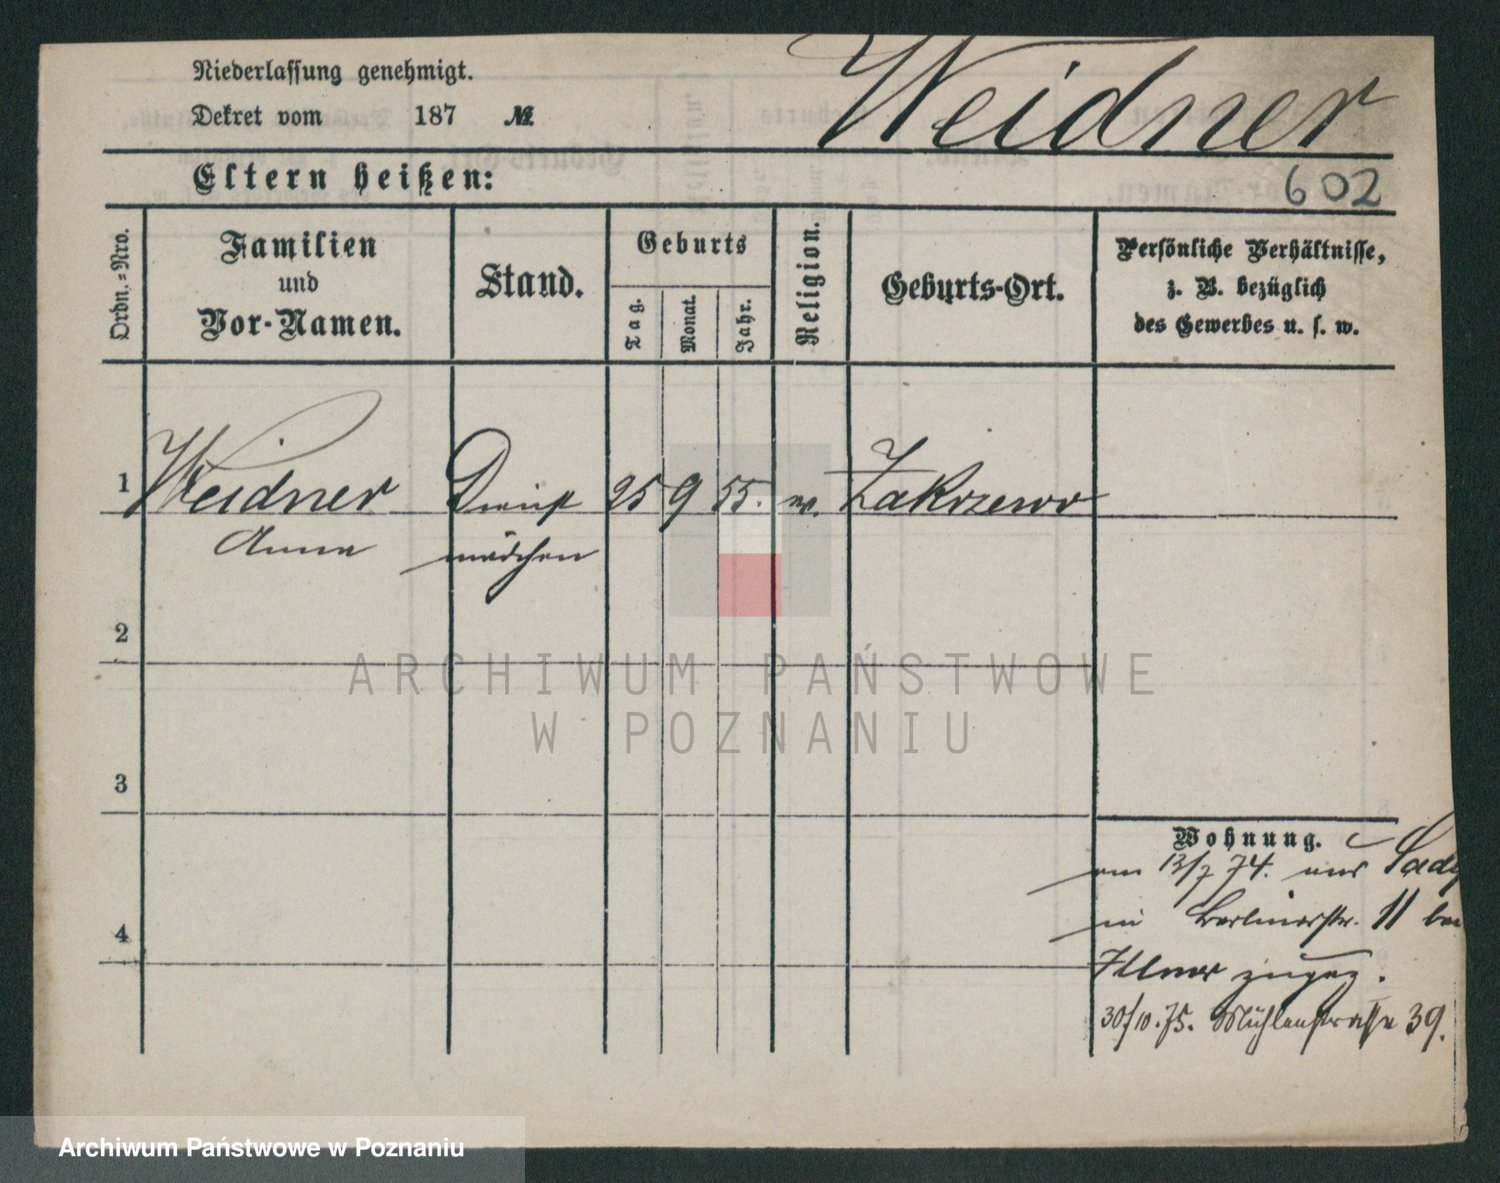 Niederlassung genehmigt.
Weidner
Dekret vom 187 №
Eltern heißen:
602
Ordn.-Nro.
Familien
und
Vor-Namen.
Stand.
Geburts
Tag.
Monat.
Jahr.
Religion.
Geburts-Ort.
Persönliche Verhältnisse,
z. B. bezüglich
des Gewerbes u. s. w.
1 Weidner Dienst 25 9 55. Zakrzewo
Anna mädchen
2
ARCHIWUM PAŃSTWOWE
W POZNANIU
3
Wohnung.
am 13/7 74. aus Sady
in Berlinerstr. 11 bei
4
Illmer zugez.
30/10.75. Mühlenstrasse 39.
Archiwum Państwowe w Poznaniu